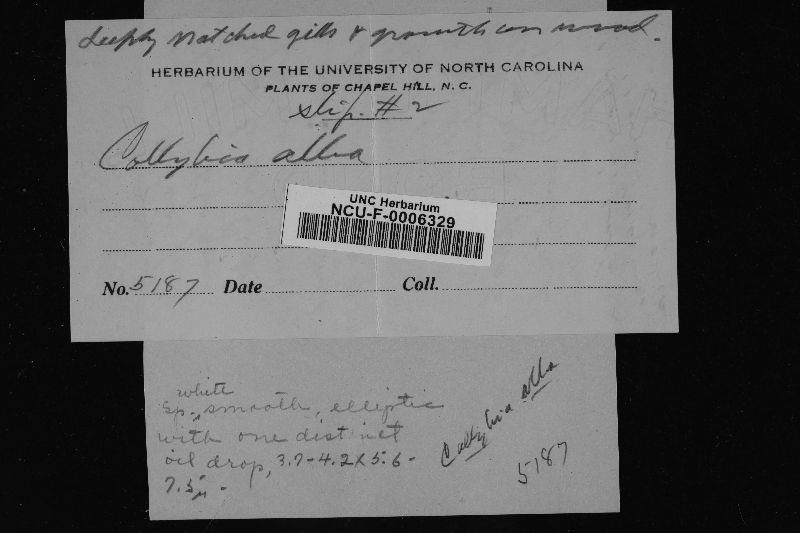 deeply notched gills & growth on wood.
HERBARIUM OF THE UNIVERSITY OF NORTH CAROLINA
PLANTS OF CHAPEL HILL, N. C.
slip. # 2
Collybia alba
UNC Herbarium
NCU-F-0006329
No. 5187 Date Coll.
white
Sp. smooth, elliptic
with one distinct
oil drop, 3.7-4.2 X 5.6-
7.5µ.
Collybia alba
5187